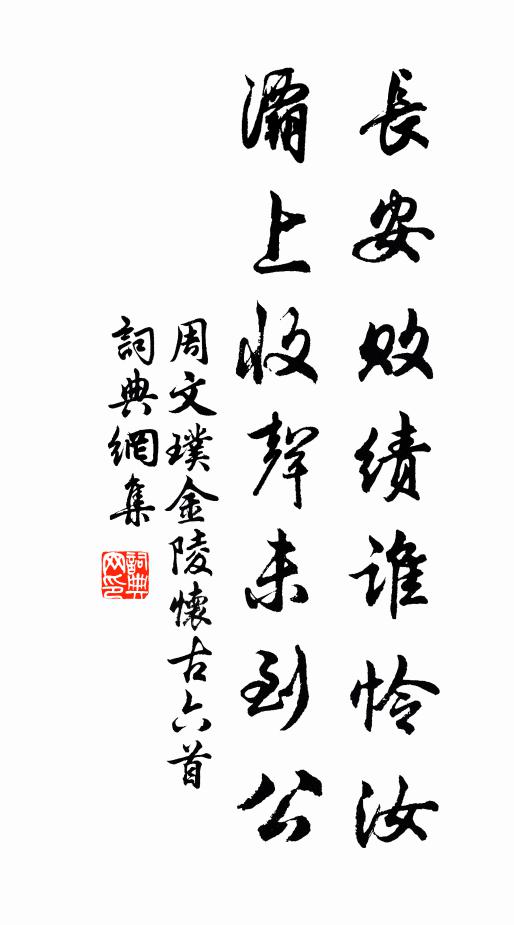 長安敗績誰憐汝
灞上收聲未到公
周文璞金陵懷古六首
詞典網集
詞典网印